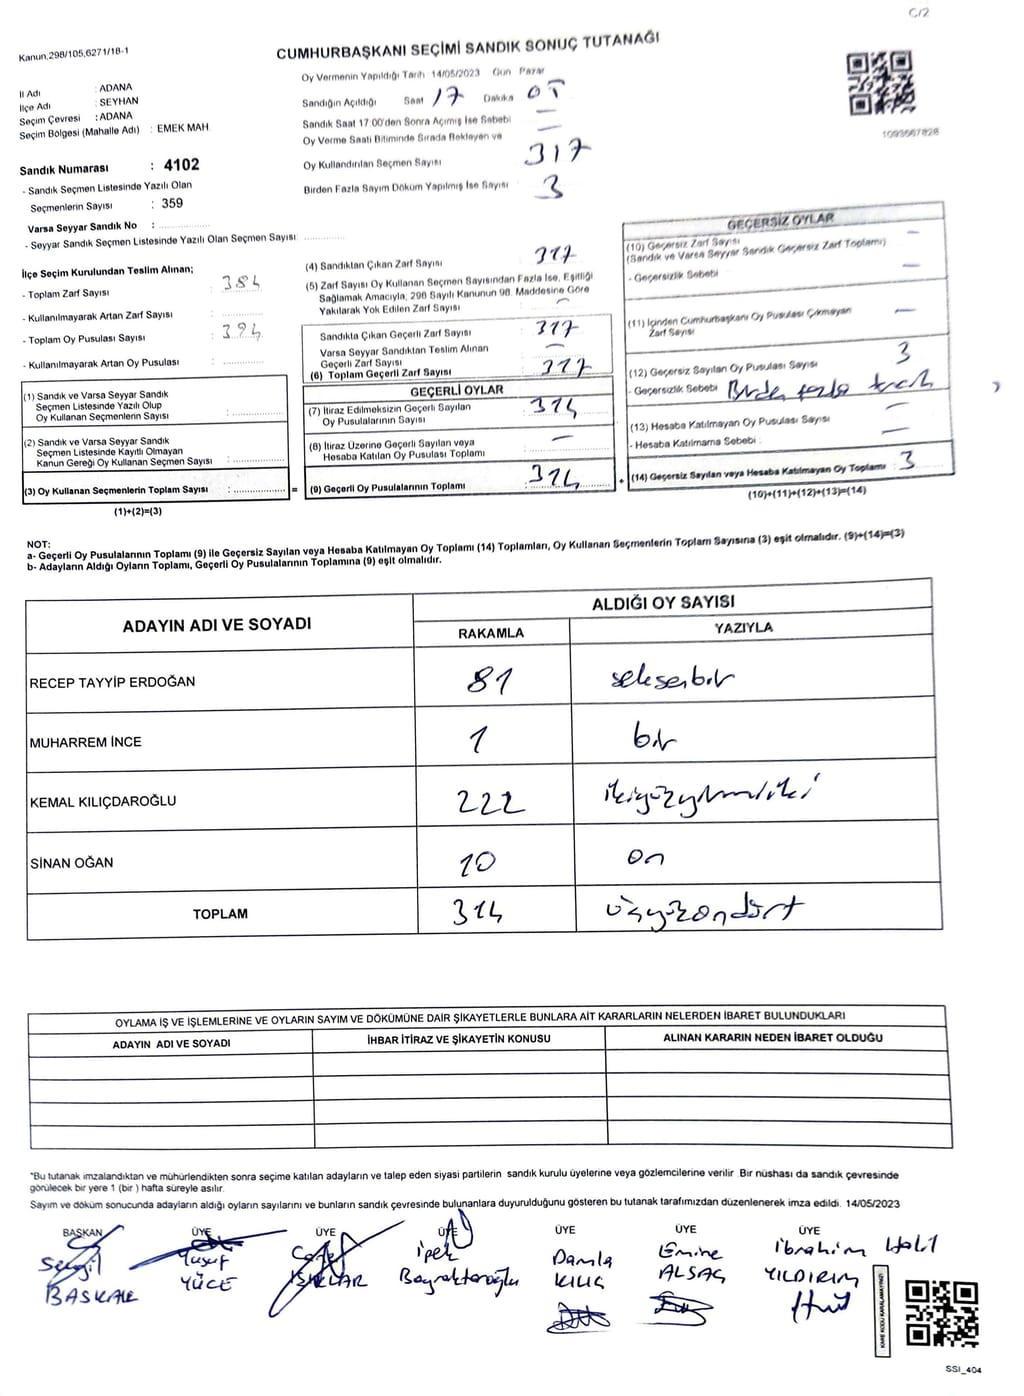 C/2
Kanun,298/105,6271/18-1
CUMHURBAŞKANI SEÇİMİ SANDIK SONUÇ TUTANAĞI
İl Adı : ADANA
İlçe Adı : SEYHAN
Seçim Çevresi : ADANA
Seçim Bölgesi (Mahalle Adı) : EMEK MAH.
Sandık Numarası : 4102
- Sandık Seçmen Listesinde Yazılı Olan
Seçmenlerin Sayısı : 359
Varsa Seyyar Sandık No :
- Seyyar Sandık Seçmen Listesinde Yazılı Olan Seçmen Sayısı
Oy Vermenin Yapıldığı Tarih 14/05/2023 Gün Pazar
Sandığın Açıldığı Saat 17 Dakika
Sandık Saat 17:00'den Sonra Açmış İse Sebebi —
Oy Verme Saati Bitiminde Sırada Bekleyen ve —
Oy Kullandırılan Seçmen Sayısı 317
Birden Fazla Sayım Döküm Yapılmış İse Sayısı 3
1093567828
İlçe Seçim Kurulundan Teslim Alınan;
- Toplam Zarf Sayısı : 384
- Kullanılmayarak Artan Zarf Sayısı :
- Toplam Oy Pusulası Sayısı : 394
- Kullanılmayarak Artan Oy Pusulası :
(1) Sandık ve Varsa Seyyar Sandık
Seçmen Listesinde Yazılı Olup
Oy Kullanan Seçmenlerin Sayısı :
(2) Sandık ve Varsa Seyyar Sandık
Seçmen Listesinde Kayıtlı Olmayan
Kanun Gereği Oy Kullanan Seçmen Sayısı :
(3) Oy Kullanan Seçmenlerin Toplam Sayısı : =
(1)+(2)=(3)
(4) Sandıktan Çıkan Zarf Sayısı 317
(5) Zarf Sayısı Oy Kullanan Seçmen Sayısından Fazla İse, Eşitliği
Sağlamak Amacıyla, 298 Sayılı Kanunun 98. Maddesine Göre
Yakılarak Yok Edilen Zarf Sayısı : —
Sandıkta Çıkan Geçerli Zarf Sayısı 317
Varsa Seyyar Sandıktan Teslim Alınan
Geçerli Zarf Sayısı —
(6) Toplam Geçerli Zarf Sayısı 317
GEÇERLİ OYLAR
(7) İtiraz Edilmeksizin Geçerli Sayılan
Oy Pusulalarının Sayısı 314
(8) İtiraz Üzerine Geçerli Sayılan veya
Hesaba Katılan Oy Pusulası Toplamı —
(9) Geçerli Oy Pusulalarının Toplamı 314 +
GEÇERSİZ OYLAR
(10) Geçersiz Zarf Sayısı —
(Sandık ve Varsa Seyyar Sandık Geçersiz Zarf Toplamı)
- Geçersizlik Sebebi —
(11) İçinden Cumhurbaşkanı Oy Pusulası Çıkmayan
Zarf Sayısı —
(12) Geçersiz Sayılan Oy Pusulası Sayısı 3
- Geçersizlik Sebebi fazla
(13) Hesaba Katılmayan Oy Pusulası Sayısı —
- Hesaba Katılmama Sebebi : —
(14) Geçersiz Sayılan veya Hesaba Katılmayan Oy Toplamı 3
(10)+(11)+(12)+(13)=(14)
NOT:
a- Geçerli Oy Pusulalarının Toplamı (9) ile Geçersiz Sayılan veya Hesaba Katılmayan Oy Toplamı (14) Toplamları, Oy Kullanan Seçmenlerin Toplam Sayısına (3) eşit olmalıdır. (9)+(14)=(3)
b- Adayların Aldığı Oyların Toplamı, Geçerli Oy Pusulalarının Toplamına (9) eşit olmalıdır.
ADAYIN ADI VE SOYADI ALDIĞI OY SAYISI
RAKAMLA YAZIYLA
RECEP TAYYİP ERDOĞAN 81 seksenbir
MUHARREM İNCE 1 bir
KEMAL KILIÇDAROĞLU 222 ikiyüzyirmiiki
SİNAN OĞAN 10 on
TOPLAM 314 üçyüzondört
OYLAMA İŞ VE İŞLEMLERİNE VE OYLARIN SAYIM VE DÖKÜMÜNE DAİR ŞİKAYETLERLE BUNLARA AİT KARARLARIN NELERDEN İBARET BULUNDUKLARI
ADAYIN ADI VE SOYADI İHBAR İTİRAZ VE ŞİKAYETİN KONUSU ALINAN KARARIN NEDEN İBARET OLDUĞU
"Bu tutanak imzalandıktan ve mühürlendikten sonra seçime katılan adayların ve talep eden siyasi partilerin sandık kurulu üyelerine veya gözlemcilerine verilir. Bir nüshası da sandık çevresinde
görülecek bir yere 1 (bir ) hafta süreyle asılır.
Sayım ve döküm sonucunda adayların aldığı oyların sayılarını ve bunların sandık çevresinde bulunanlara duyurulduğunu gösteren bu tutanak tarafımızdan düzenlenerek imza edildi. 14/05/2023
BAŞKAN ÜYE ÜYE ÜYE ÜYE ÜYE ÜYE
Yusuf İpek Damla Emine İbrahim Halil
BAŞKALE YÜCE Bayraktaroğlu KILIÇ ALSAÇ YILDIRIM
KARE KODU KARALAMAYINIZ!
SSI_404